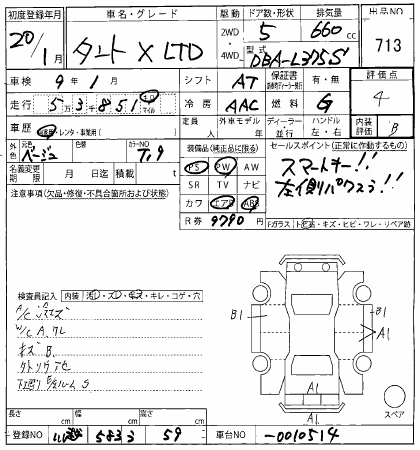 初度登録年月 車名・グレード 駆動 ドア数・形状 排気量 出品NO
20/1月 タント X LTD 2WD 4WD 5 660cc 713
型式 DBA-L375S
車検 9年1月 シフト AT 保証書 有・無 評価点
走行 5万3千851 キロ マイル 冷房 AAC 燃料 G 4
車歴 自家用・レンタ・事業用 定員 人 外車モデル 年 ディーラー・並行 ハンドル 左・右 内装評価 B
外色 元色 ベージュ 色替 カラーNO T19 装備品(純正品に限る) セールスポイント(正常に作動するもの)
名義変更期限 月 日迄 積載 t PS PW AS スマートキー!!
注意事項(欠品・修復・不具合箇所および状態) SR TV ナビ 左側パワスラ!!
カワ エアB ABS
R券 9790円 Fガラス
キズ・ヒビ・ワレ・リペア跡
検査員記入 内装 ・キレ・コゲ・穴
B1 B1
A/C
W/C A ワレ
キズ B
A1
A1
スペア
長さ cm 幅 cm 高さ cm
登録NO 583 59 車台NO -0010514